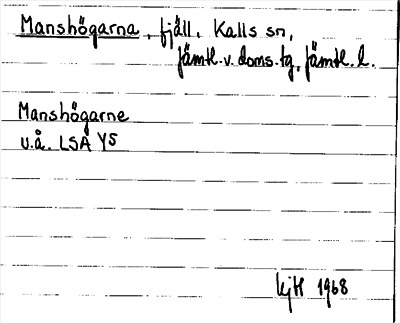 Manshögarna, fjäll, Kalls sn,
Jämtl. v. doms.tg, Jämtl. l.
Manshögarne
u.å. LSA Y5
kjH 1968